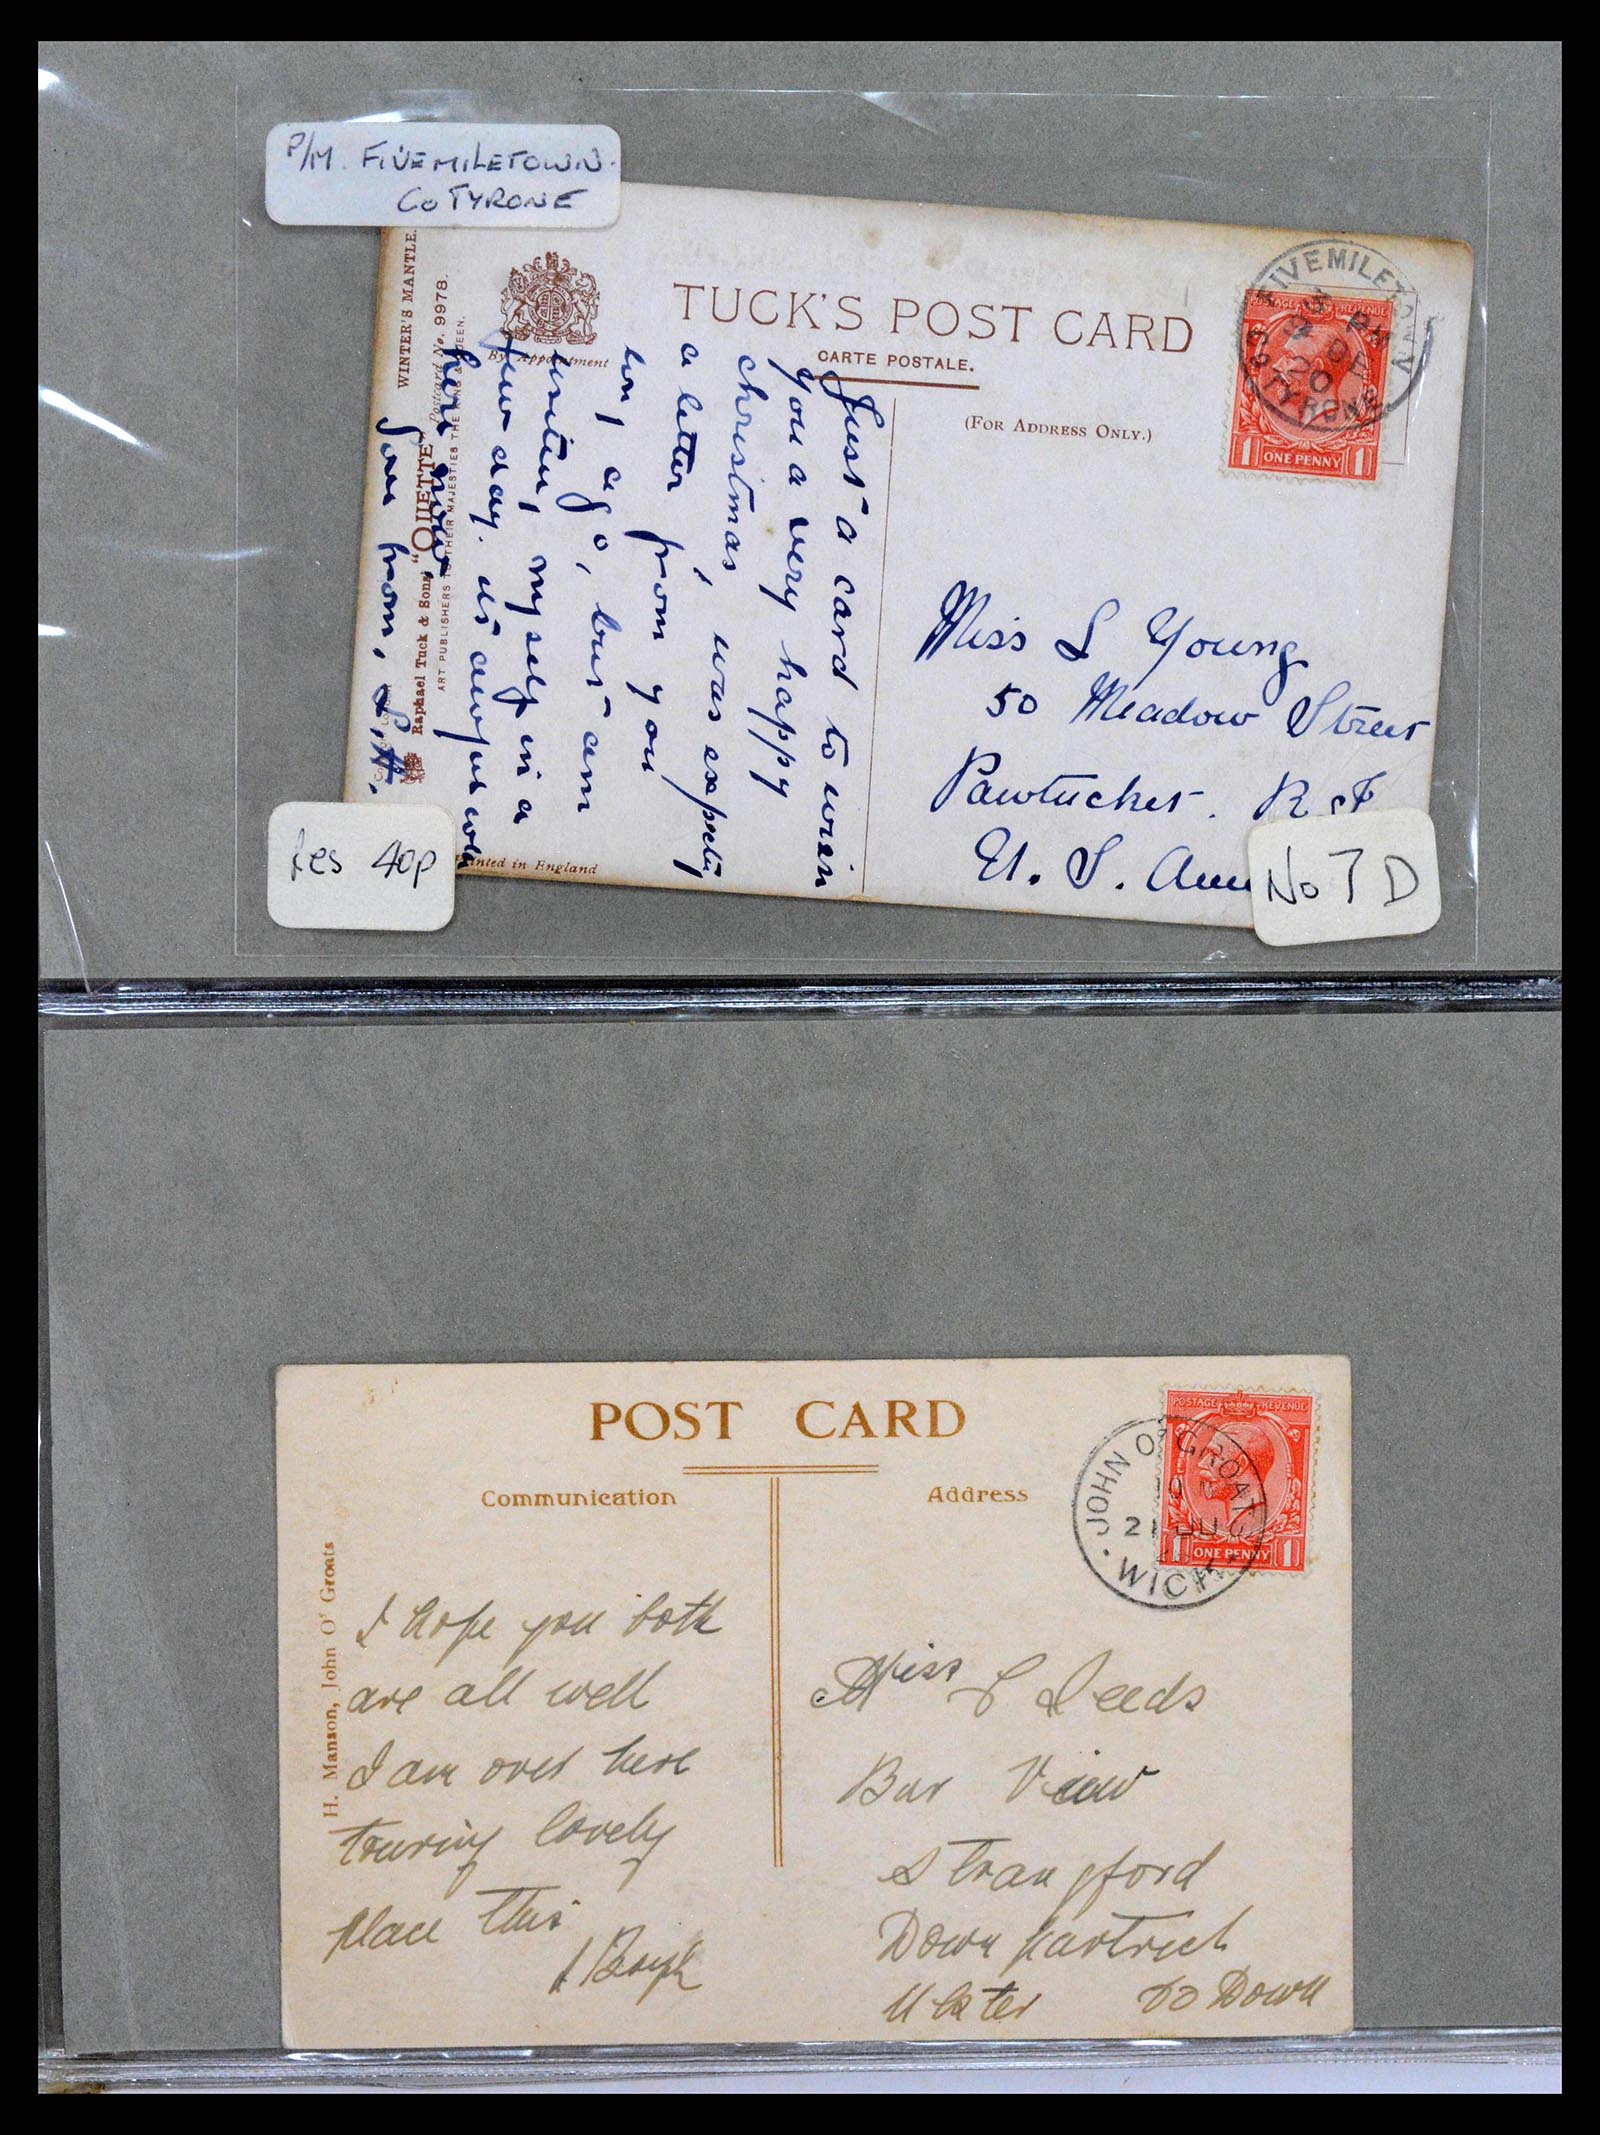 P/M. FIVEMILETOWN.
Co TYRONE
WINTER'S MANTLE.
"OILETTE" Postcard No. 9978.
Raphael Tuck & Sons'
ART PUBLISHERS TO THEIR MAJESTIES THE KING &
By Appointment
TUCK'S POST CARD
CARTE POSTALE.
(FOR ADDRESS ONLY.)
FIVEMILETOWN
PM
DE
20
CO TYRONE
POSTAGE REVENUE
1 ONE PENNY 1
Just a card to wish
you a very happy
christmas, was
a letter from you
long ago, but am
writing myself in a
few day. its awful cold
her now.
from, L.H.
Miss L Young
50 Meadow Street
Pawtucket. R.I
U. S. Am
Printed in England
Les 40p
No 7 D
POST CARD
Communication
Address
H. Manson, John O' Groats
JOHN O' GROATS
2 JU
WICK
POSTAGE REVENUE
1 ONE PENNY 1
I hope you both
are all well
I am over here
touring lovely
place this
Miss L Deeds
Bar View
Strangford
Down partrich
Ulster Co Down